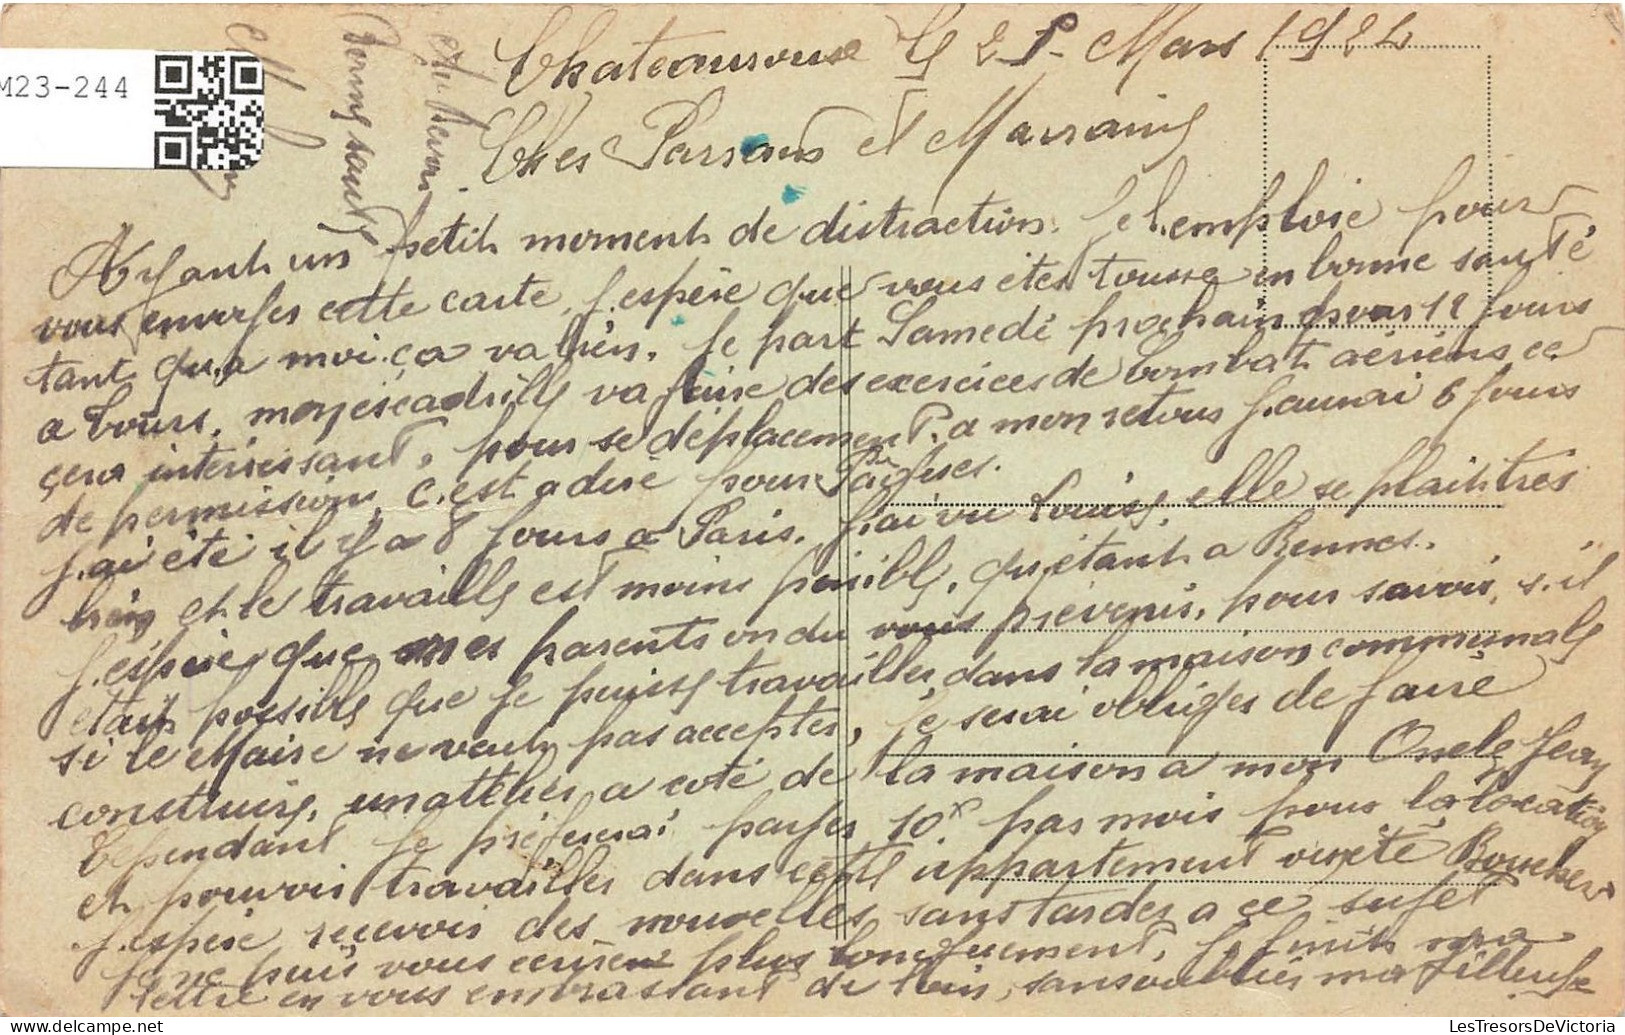 M23-244
Chateauroux le 25 Mars 1922
Cher Parrain et Marraine
Ayant un petit moment de distraction. Je l'emploie pour
vous envoyer cette carte, j'espère que vous êtes tousse en bonne santé
tant qu'a moi ça va bien. Je part Samedi prochain pour 12 jours
a Tours, mon escadrille va faire des exercices de Combat aériens ce
çera intéressant, pour se déplacement. a mon retour j'aurai 6 jours
de permission, c'est a dire pour Pâques.
J'ai été il y a 8 jours a Paris. j'ai vu Louise, elle se plait très
bien et le travaille est moins pénible, qu'étant a Rennes.
J'espère que mes parents on du vous prévenir, pour savoir, s'il
était possible que je puisse travailler dans la maison communale
si le Maire ne veut pas accepter, je serai obliger de faire
construire, un atelier a coté de la maison a mon Oncle Jean
Cependant je préfèrerai payer 10f par mois pour la location
et pouvoir travailler dans cette appartement Boucher
J'espère recevoir des nouvelles sans tarder a ce sujet
Je ne puis vous écrire plus longuement, je finit ma
lettre en vous embrassant de loin, sans oublier ma filleule
Au Revoir
Bonne santé
LesTresorsDeVictoria
www.delcampe.net